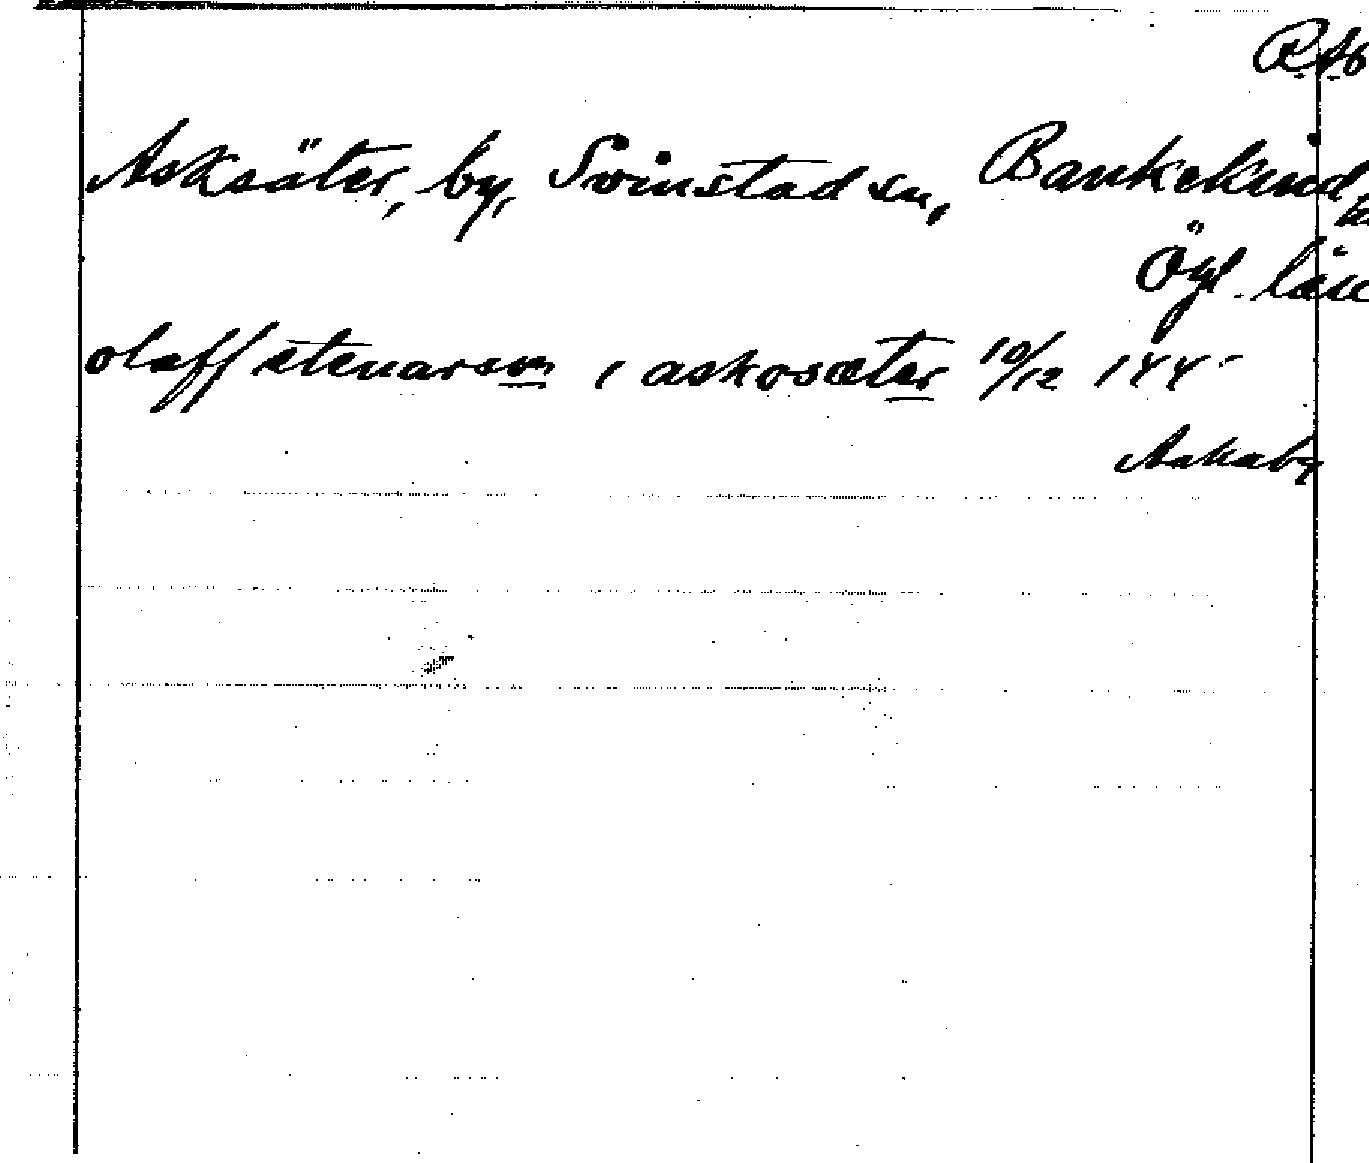 Asksäter, by, Svinstad sn, Bankekind
Ögl. län
olaff stenarson i askosæter 10/12 144-
Askaby